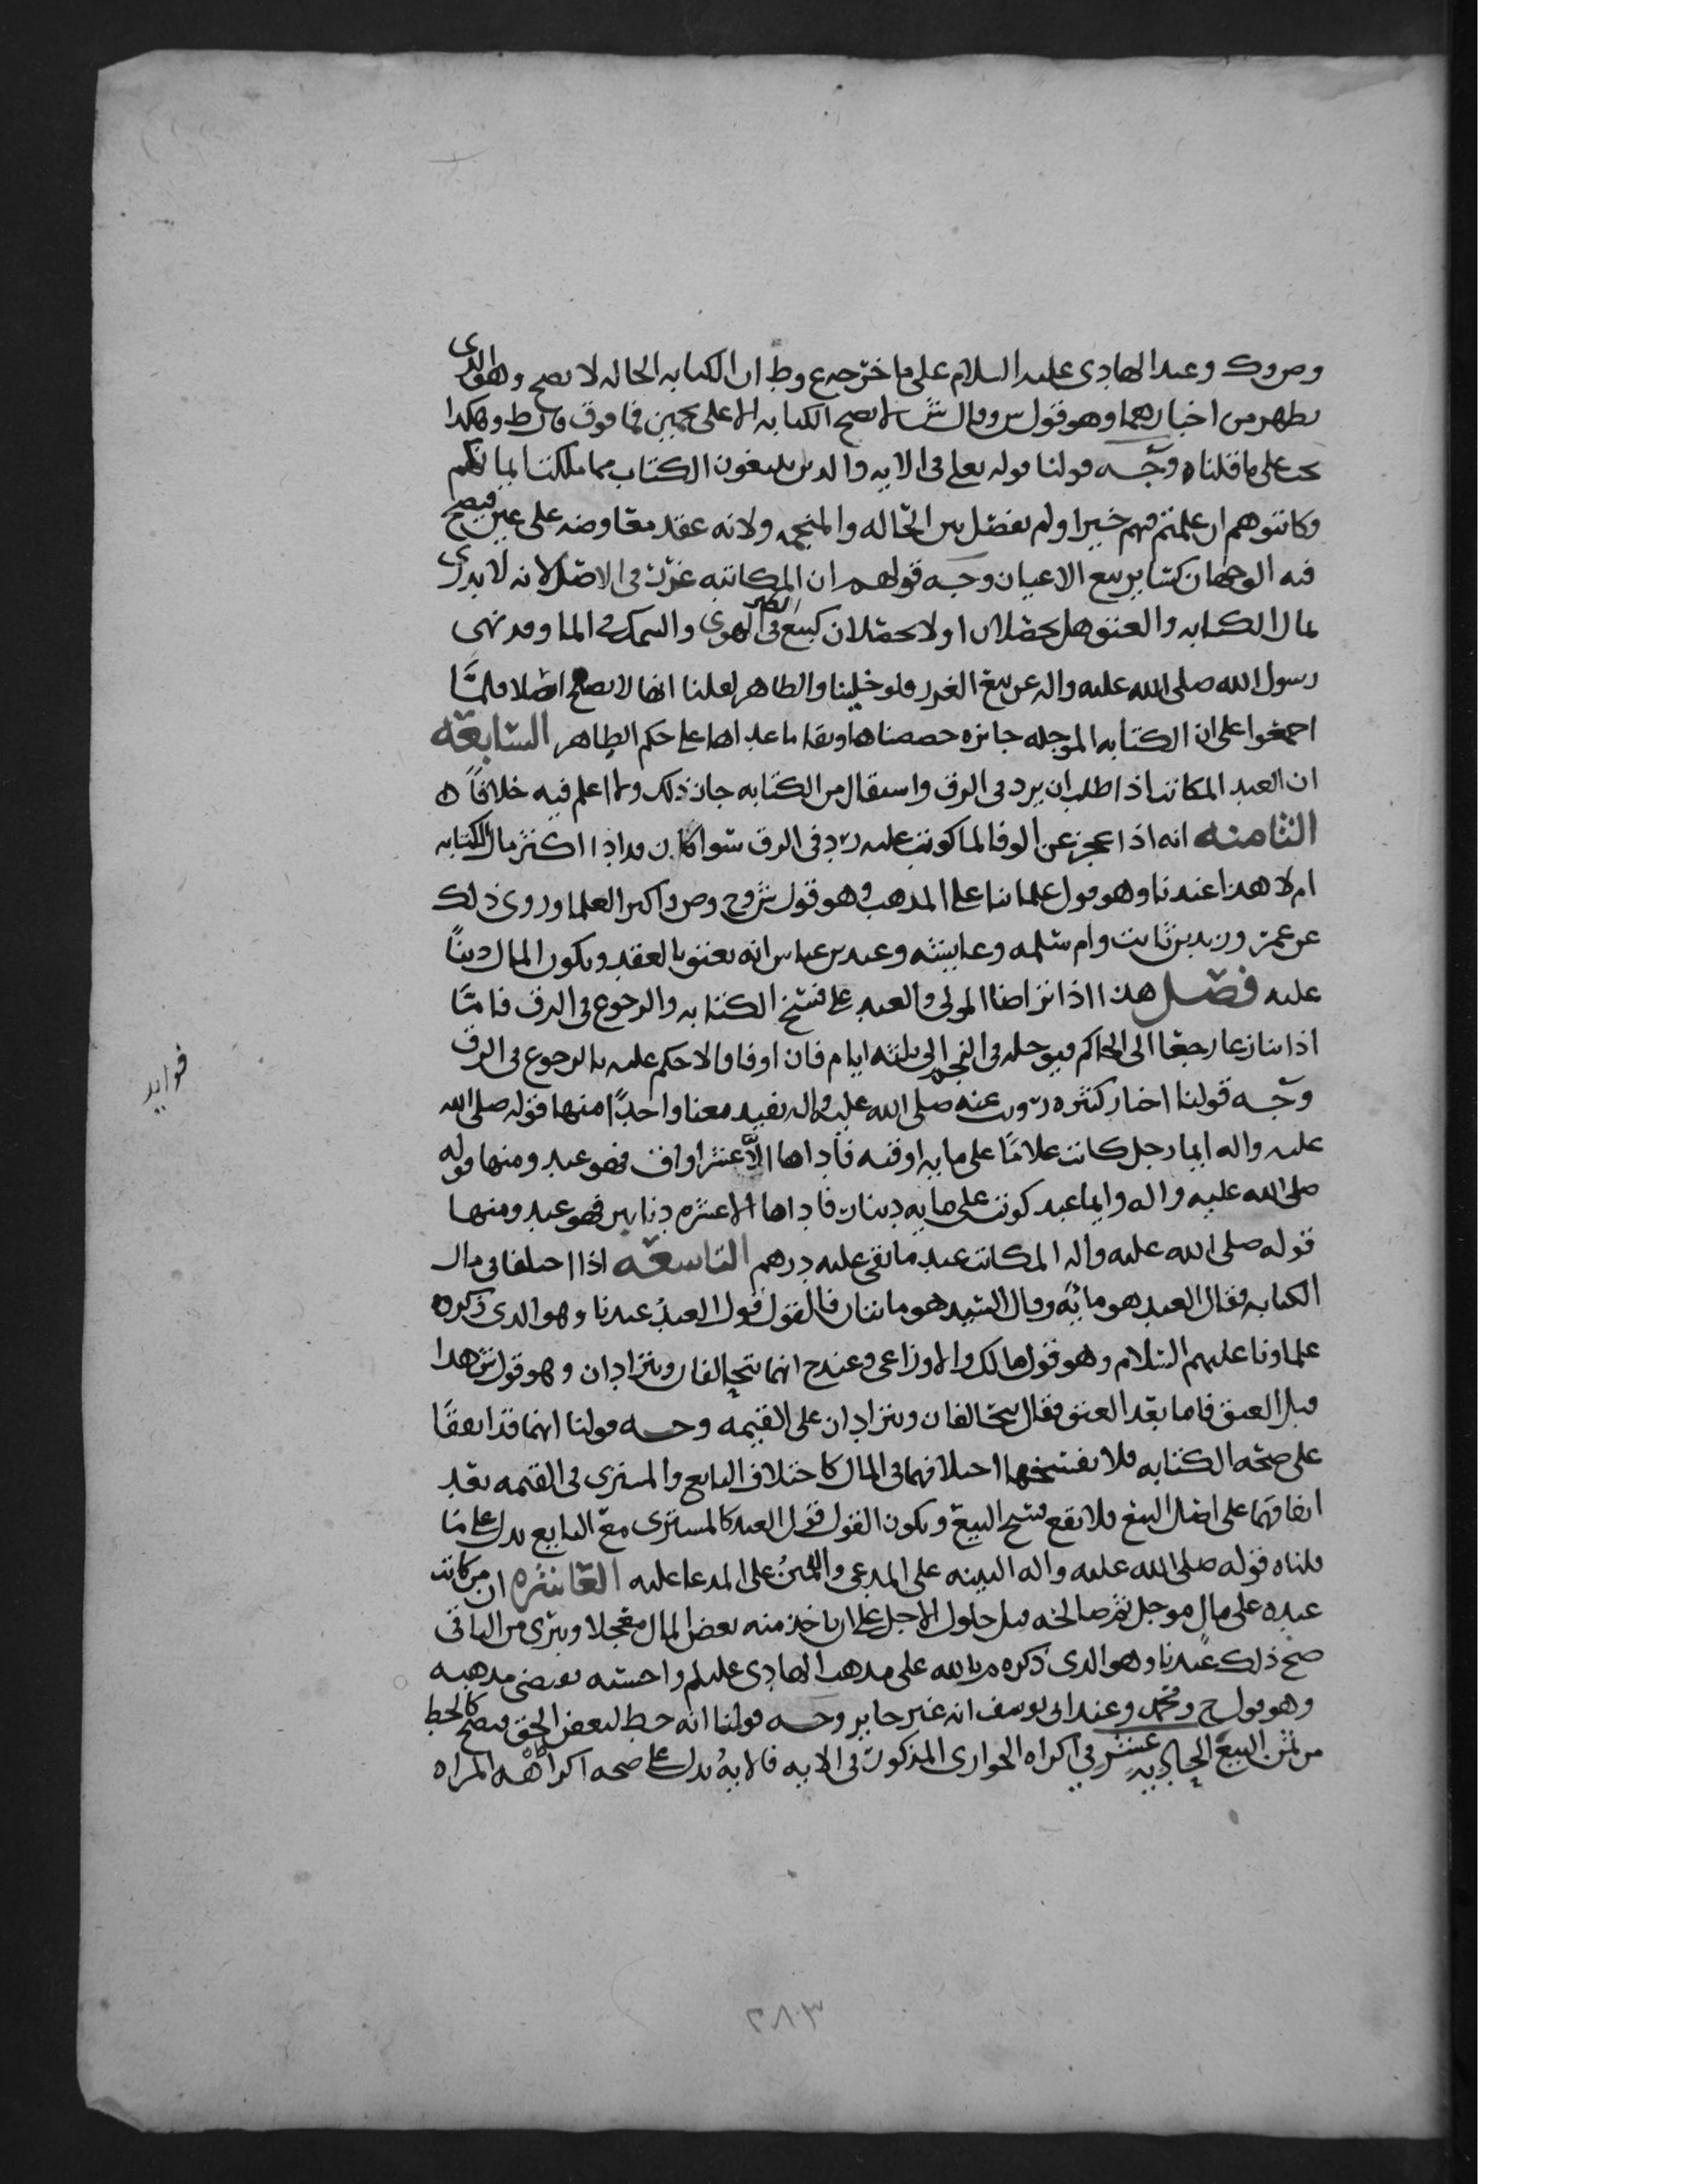 وص وك وعند الهادي عليه السلام على ما خرجه ع وط ان الكتابه الحاله لا تصح وهو الدى
يظهر من اخبارهما وهو قول س وقال ش لا تصح الكتابه الا على نجمين فما فوق وهكذا
على ما قلناه وجه قولنا قوله تعلى فى الايه والدين يبتغون الكتاب مما ملكت ايمانكم
فكاتبوهم ان علمتم فيهم خيرا ولم يفصل بين الحاله والمنجمه ولانه عقد معاوضه على عين فيصح
فيه الوجهان كسائر بيع الاعيان وجه قولهم ان المكاتبه غرر فى الاصل لانه لا يدرى
مال الكتابه والعتق هل يحصلان او لا يحصلان كبيع الطير فى الهوى والسمك فى الما وقد نهى
رسول الله صلى الله عليه واله عن بيع الغرر فلو خلينا والظاهر لقلنا انها لا تصح اصلا فلما
اجمعوا على ان الكتابه الموجله جائزه خصصناها وبقا ما عداها على حكم الظاهر السابعه
ان العبد المكاتب اذا طلب ان يرد فى الرق واستقال من الكتابه جاز ذلك ولا اعلم فيه خلافا ه
الثامنه انه اذا عجز عن الوفا لما كوتب عليه رد فى الرق سوا كان قد ادا اكثر مال الكتابه
ام لا هذا عندنا وهو قول علمائنا على المذهب وهو قول ش وح وص واكثر العلما وروى ذلك
عن عمر وزيد بن ثابت وام سلمه وعايشه وعند بن عباس انه يعتق بالعقد ويكون المال دينا
عليه فصل هذا اذا تراضا المولى والعبد على فسخ الكتابه والرجوع فى الرق فاما
اذا تنازعا رجعا الى الحاكم فيوجله فى النجم الى ثلثه ايام فان اوفا والا حكم عليه بالرجوع فى الرق
وجه قولنا اخبار كثيره رويت عنه صلى الله عليه واله تفيد معنا واحدا منها قوله صلى الله
عليه واله ايما رجل كاتب غلاما على مايه اوقيه فاداها الا عشر اواق فهو عبد ومنها قوله
صلى الله عليه واله وايما عبد كوتب على مايه دينار فاداها الا عشره دنانير فهو عبد ومنها
قوله صلى الله عليه واله المكاتب عبد ما بقى عليه درهم التاسعه اذا اختلفا فى مال
الكتابه فقال العبد هو مائه وقال السيد هو مائتان فالقول قول العبد عندنا وهو الدى ذكره
علماونا عليهم السلام وهو قول مالك والاوزاعى وعند ح انهما يتحالفان ويترادان وهو قول ش هدا
قبل العتق فاما بعد العتق فقال يتحالفان ويترادان على القيمه وجه قولنا انهما قد اتفقا
على صحه الكتابه فلا يفسخها اختلافهما فى المال كاختلاف البايع والمشترى فى القيمه بعد
اتفاقهما على اصل البيع فلا يقع فسخ البيع ويكون القول قول العبد كالمشترى مع البايع يدل على ما
قلناه قوله صلى الله عليه واله البينه على المدعى واليمين على المدعا عليه العاشره ان من كاتب
عبده على مال موجل ثم صالحه قبل حلول الاجل على ان ياخذ منه بعض المال معجلا ويبرى من الباقى
صح ذلك عندنا وهو الدى ذكره م بالله على مذهب الهادى عليلم واحسبه يقتضى مذهبه
وهو قول ح ومحمد وعند ابى يوسف انه غير جايز وجه قولنا انه حط لبعض الحق فيصح كالحط
من ثمن البيع الحاديه عشر فى اكراه الجوارى المذكور فى الايه فالايه يدل على صحه اكراهه المراه
فوايد